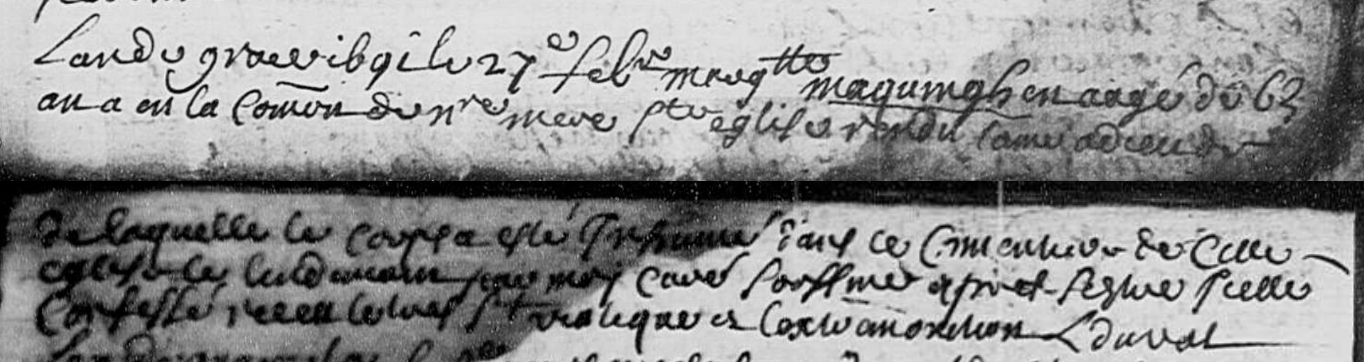 Lan du grace 1691 le 27e febre margtte maguingh en aagé de 63
an a en la Comon de nre mere ste eglise rendu lame a dieu de
de laquelle le corps a esté Inhumé dans le Cimentiere de Cette
eglise le lendemain par moy curé soussiné apres sestre
Confessé receu le tres st viatique et Lextremonction L duval